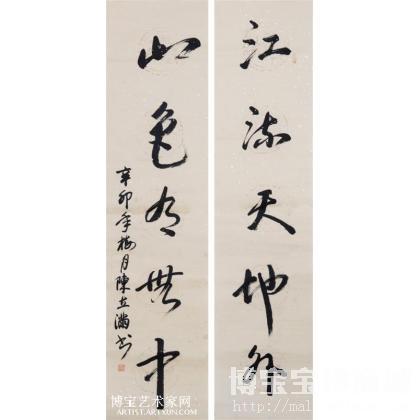 江流天地外
山色有無中
辛卯年梅月陳立滿书
博宝艺术家网
ARTIST.ARTXUN.COM
博宝
http://mal